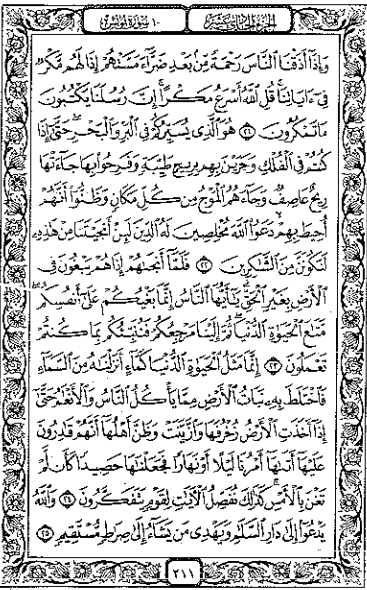 الجزء الحادي عشر
١٠ سورة يونس
وَإِذَآ أَذَقْنَا ٱلنَّاسَ رَحْمَةً مِّنۢ بَعْدِ ضَرَّآءَ مَسَّتْهُمْ إِذَا لَهُم مَّكْرٌ
فِىٓ ءَايَاتِنَا ۚ قُلِ ٱللَّهُ أَسْرَعُ مَكْرًا ۚ إِنَّ رُسُلَنَا يَكْتُبُونَ
مَا تَمْكُرُونَ ۝٢١ هُوَ ٱلَّذِى يُسَيِّرُكُمْ فِى ٱلْبَرِّ وَٱلْبَحْرِ ۖ حَتَّىٰٓ إِذَا
كُنتُمْ فِى ٱلْفُلْكِ وَجَرَيْنَ بِهِم بِرِيحٍ طَيِّبَةٍ وَفَرِحُوا۟ بِهَا جَآءَتْهَا
رِيحٌ عَاصِفٌ وَجَآءَهُمُ ٱلْمَوْجُ مِن كُلِّ مَكَانٍ وَظَنُّوٓا۟ أَنَّهُمْ
أُحِيطَ بِهِمْ ۙ دَعَوُا۟ ٱللَّهَ مُخْلِصِينَ لَهُ ٱلدِّينَ لَئِنْ أَنجَيْتَنَا مِنْ هَٰذِهِۦ
لَنَكُونَنَّ مِنَ ٱلشَّٰكِرِينَ ۝٢٢ فَلَمَّآ أَنجَىٰهُمْ إِذَا هُمْ يَبْغُونَ فِى
ٱلْأَرْضِ بِغَيْرِ ٱلْحَقِّ ۗ يَٰٓأَيُّهَا ٱلنَّاسُ إِنَّمَا بَغْيُكُمْ عَلَىٰٓ أَنفُسِكُم ۖ
مَّتَٰعَ ٱلْحَيَوٰةِ ٱلدُّنْيَا ۖ ثُمَّ إِلَيْنَا مَرْجِعُكُمْ فَنُنَبِّئُكُم بِمَا كُنتُمْ
تَعْمَلُونَ ۝٢٣ إِنَّمَا مَثَلُ ٱلْحَيَوٰةِ ٱلدُّنْيَا كَمَآءٍ أَنزَلْنَٰهُ مِنَ ٱلسَّمَآءِ
فَٱخْتَلَطَ بِهِۦ نَبَاتُ ٱلْأَرْضِ مِمَّا يَأْكُلُ ٱلنَّاسُ وَٱلْأَنْعَٰمُ حَتَّىٰٓ
إِذَآ أَخَذَتِ ٱلْأَرْضُ زُخْرُفَهَا وَٱزَّيَّنَتْ وَظَنَّ أَهْلُهَآ أَنَّهُمْ قَٰدِرُونَ
عَلَيْهَآ أَتَىٰهَآ أَمْرُنَا لَيْلًا أَوْ نَهَارًا فَجَعَلْنَٰهَا حَصِيدًا كَأَن لَّمْ
تَغْنَ بِٱلْأَمْسِ ۚ كَذَٰلِكَ نُفَصِّلُ ٱلْءَايَٰتِ لِقَوْمٍ يَتَفَكَّرُونَ ۝٢٤ وَٱللَّهُ
يَدْعُوٓا۟ إِلَىٰ دَارِ ٱلسَّلَٰمِ وَيَهْدِى مَن يَشَآءُ إِلَىٰ صِرَٰطٍ مُّسْتَقِيمٍ ۝٢٥
٢١١